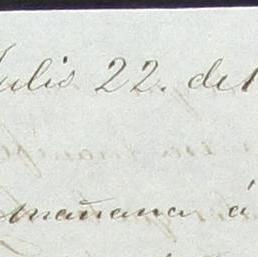 Julio 22. de 1
mañana á